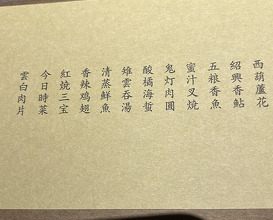 西葫蘆花
紹興香鮎
五粮香魚
蜜汁叉燒
鬼灯肉圓
酸橘海蜇
雉雲吞湯
清蒸鮮魚
香辣鸡翅
紅燒三宝
今日時菜
雲白肉片